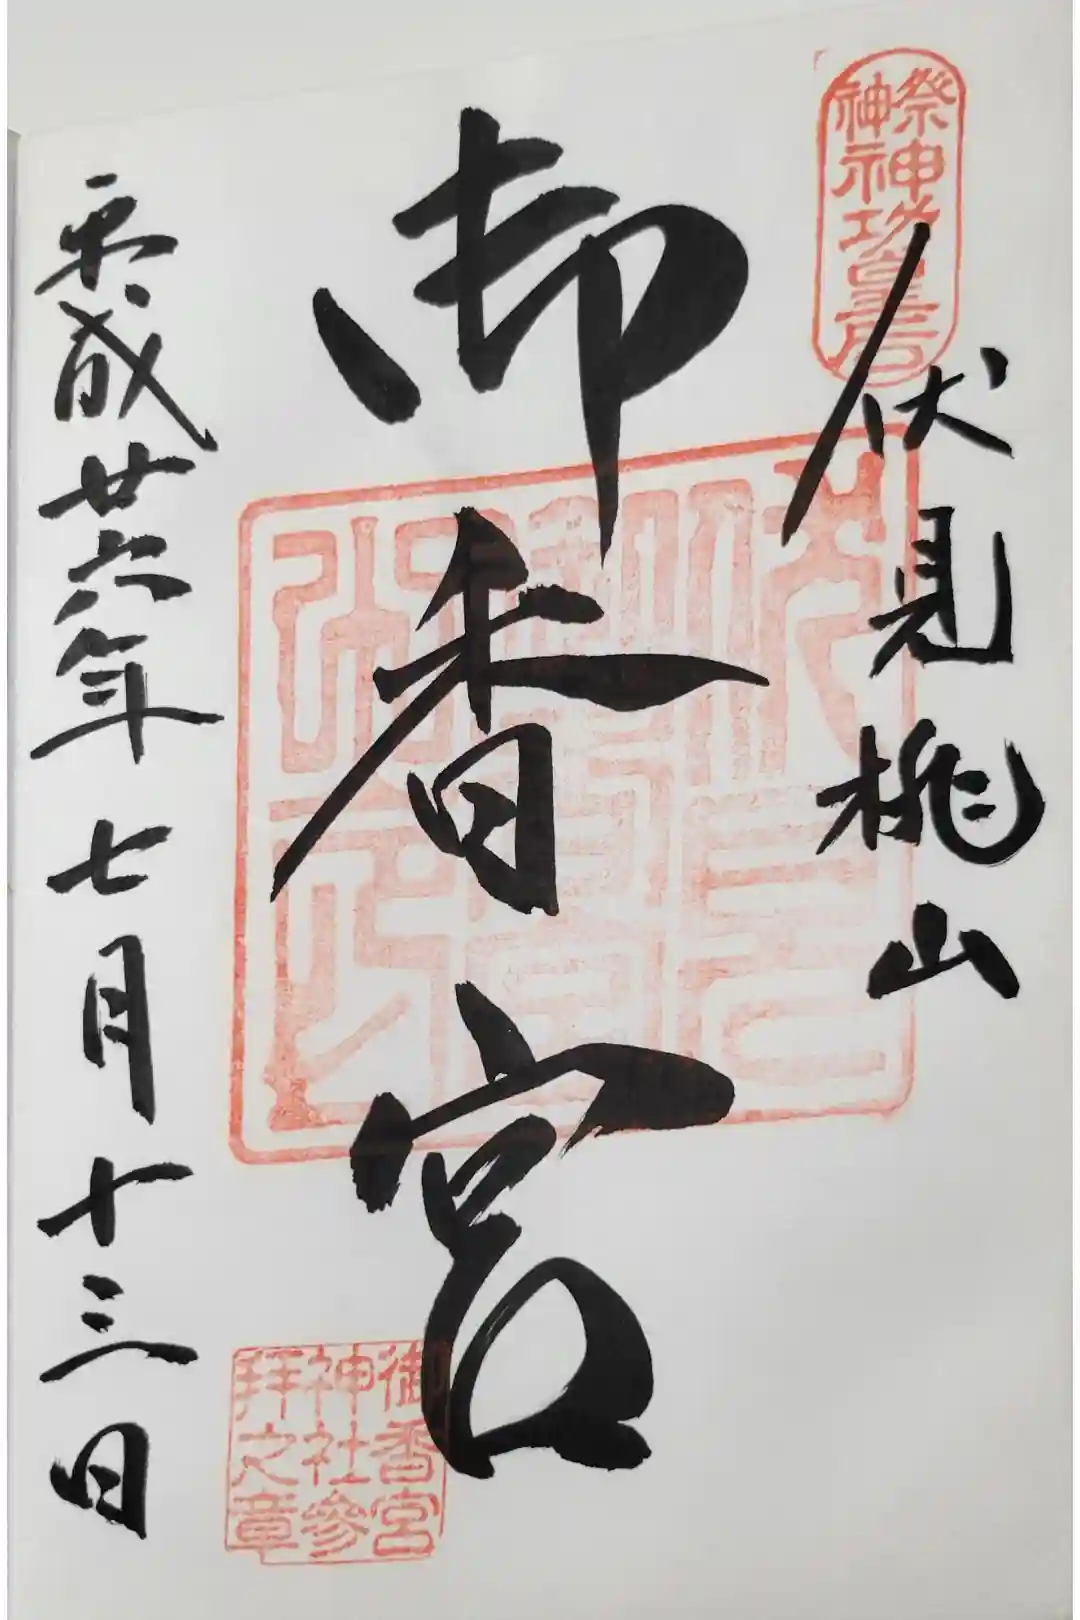 祭神神功皇后
伏見桃山
御香宮
御香宮
神社參
拜之章
平成廿六年七月十三日